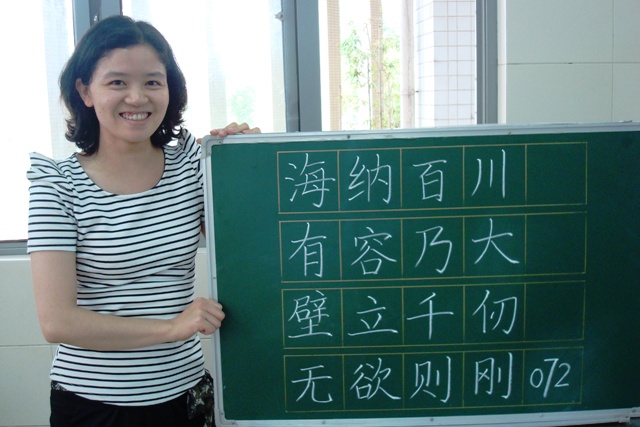 海纳百川
有容乃大
壁立千仞
无欲则刚 072